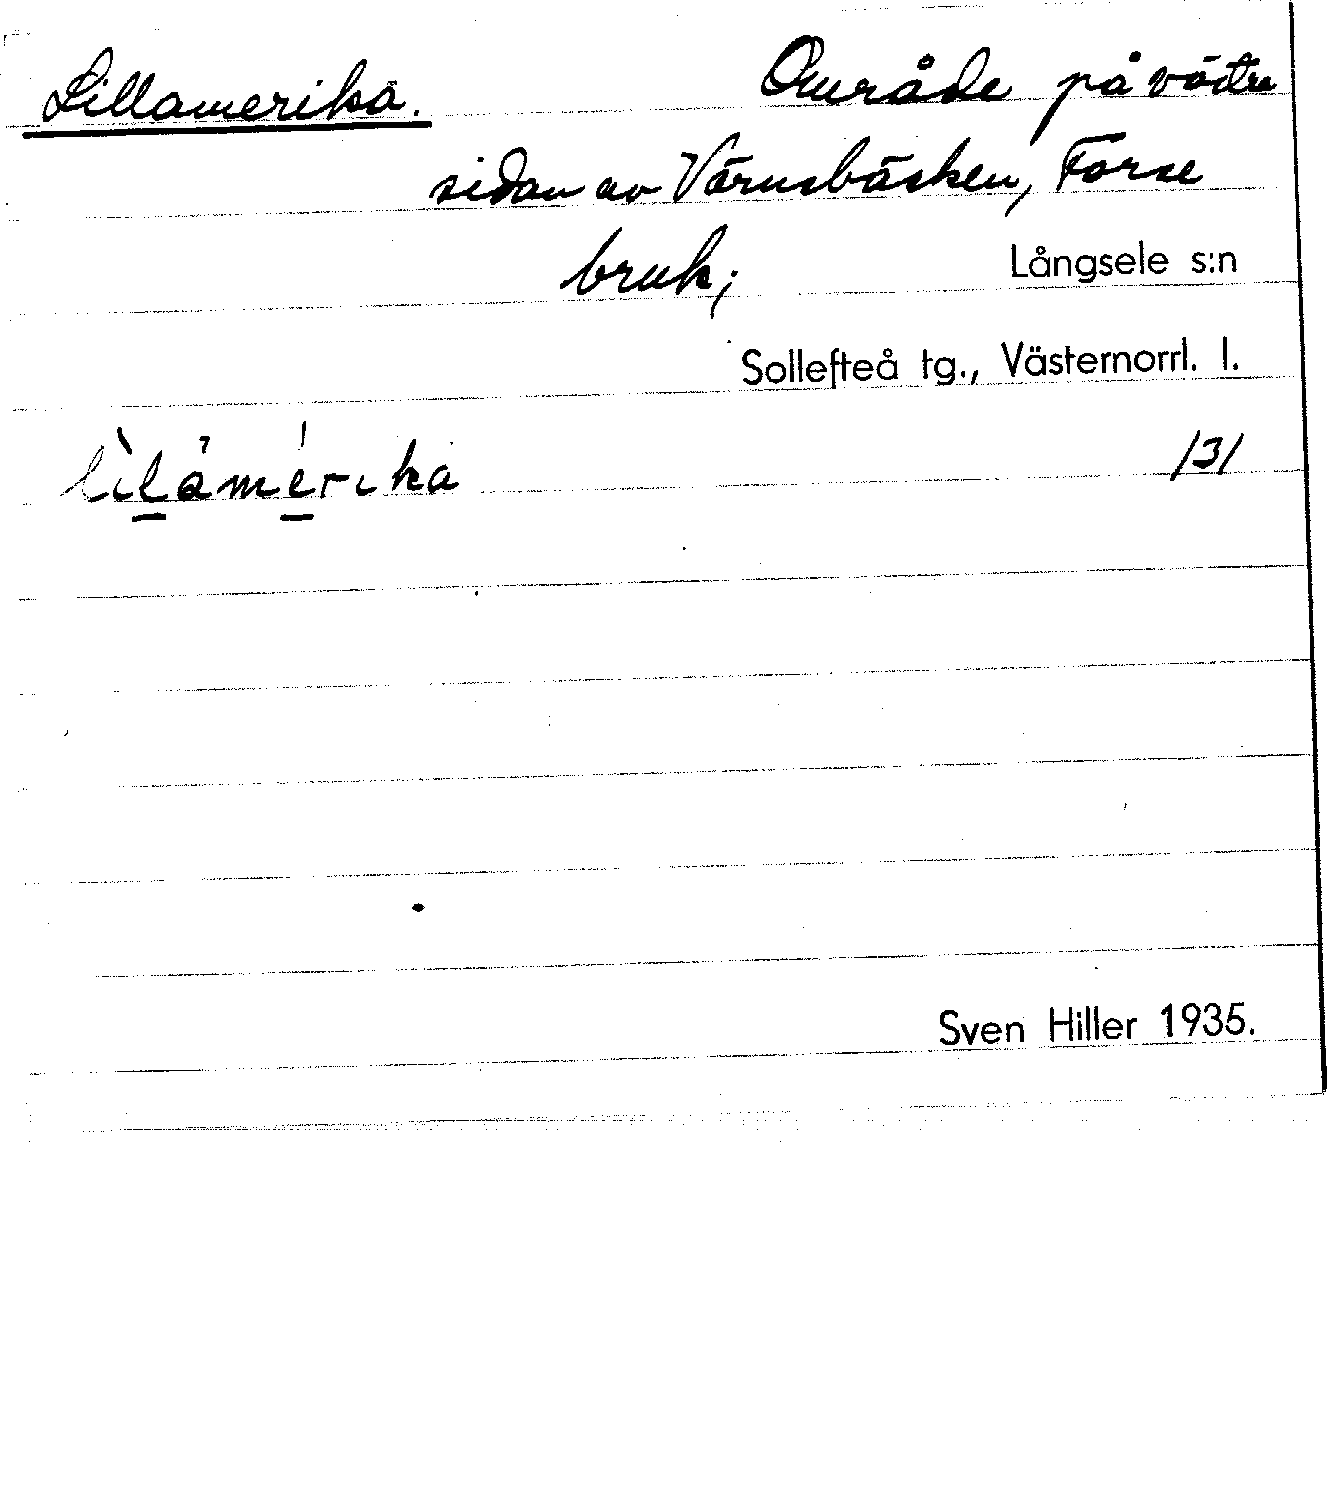 Lillamerika. Område på västra
sidan av Värnsbäcken, Forse
bruk; Långsele s:n
Sollefteå tg., Västernorrl. l.
/3/
Sven Hiller 1935.